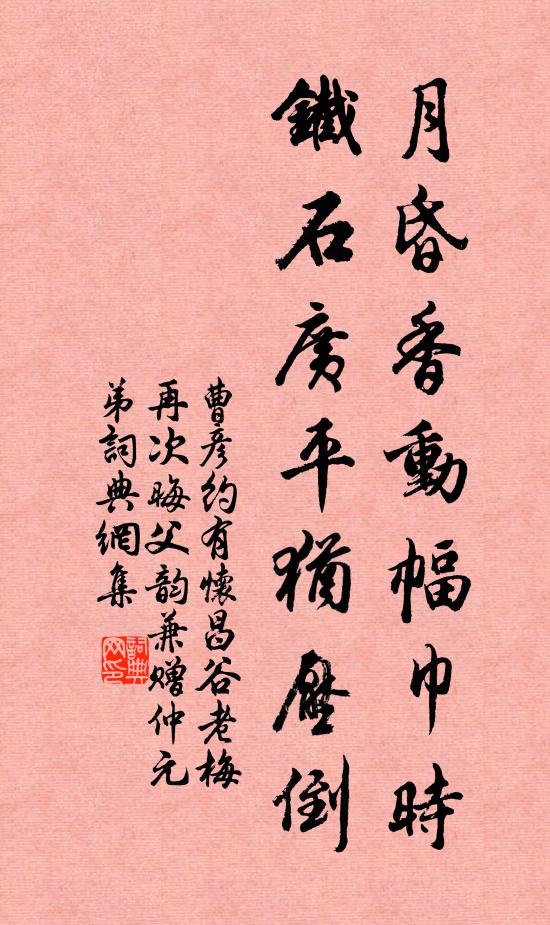 月昏香動幅巾時
鐵石廣平猶壓倒
曹彦約有懷昌谷老梅
再次晦父韵兼贈仲元
弟詞典網集
詞典
网印